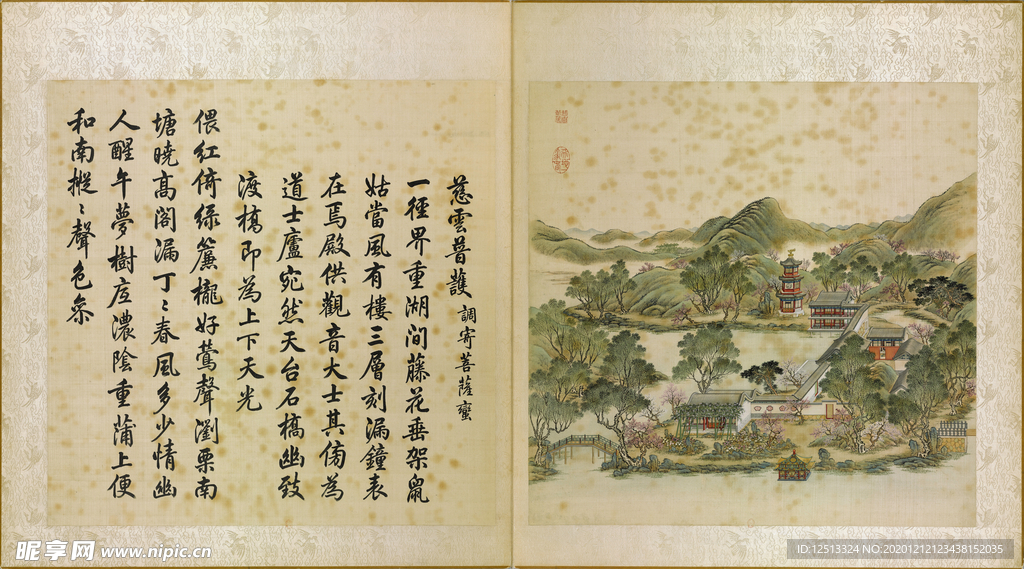 慈雲普護 調寄菩薩蠻
一徑界重湖間藤花垂架鼠
姑當風有樓三層刻漏鐘表
在焉殿供觀音大士其傍為
道士廬宛然天台石橋幽致
渡橋即為上下天光
偎紅倚綠簾櫳好鶯聲瀏栗南
塘曉高閣漏丁〻春風多少情幽
人醒午夢樹底濃陰重蒲上便
和南摐〻聲色參
昵享网 www.nipic.cn
ID:12513324 NO:20201212123438152035